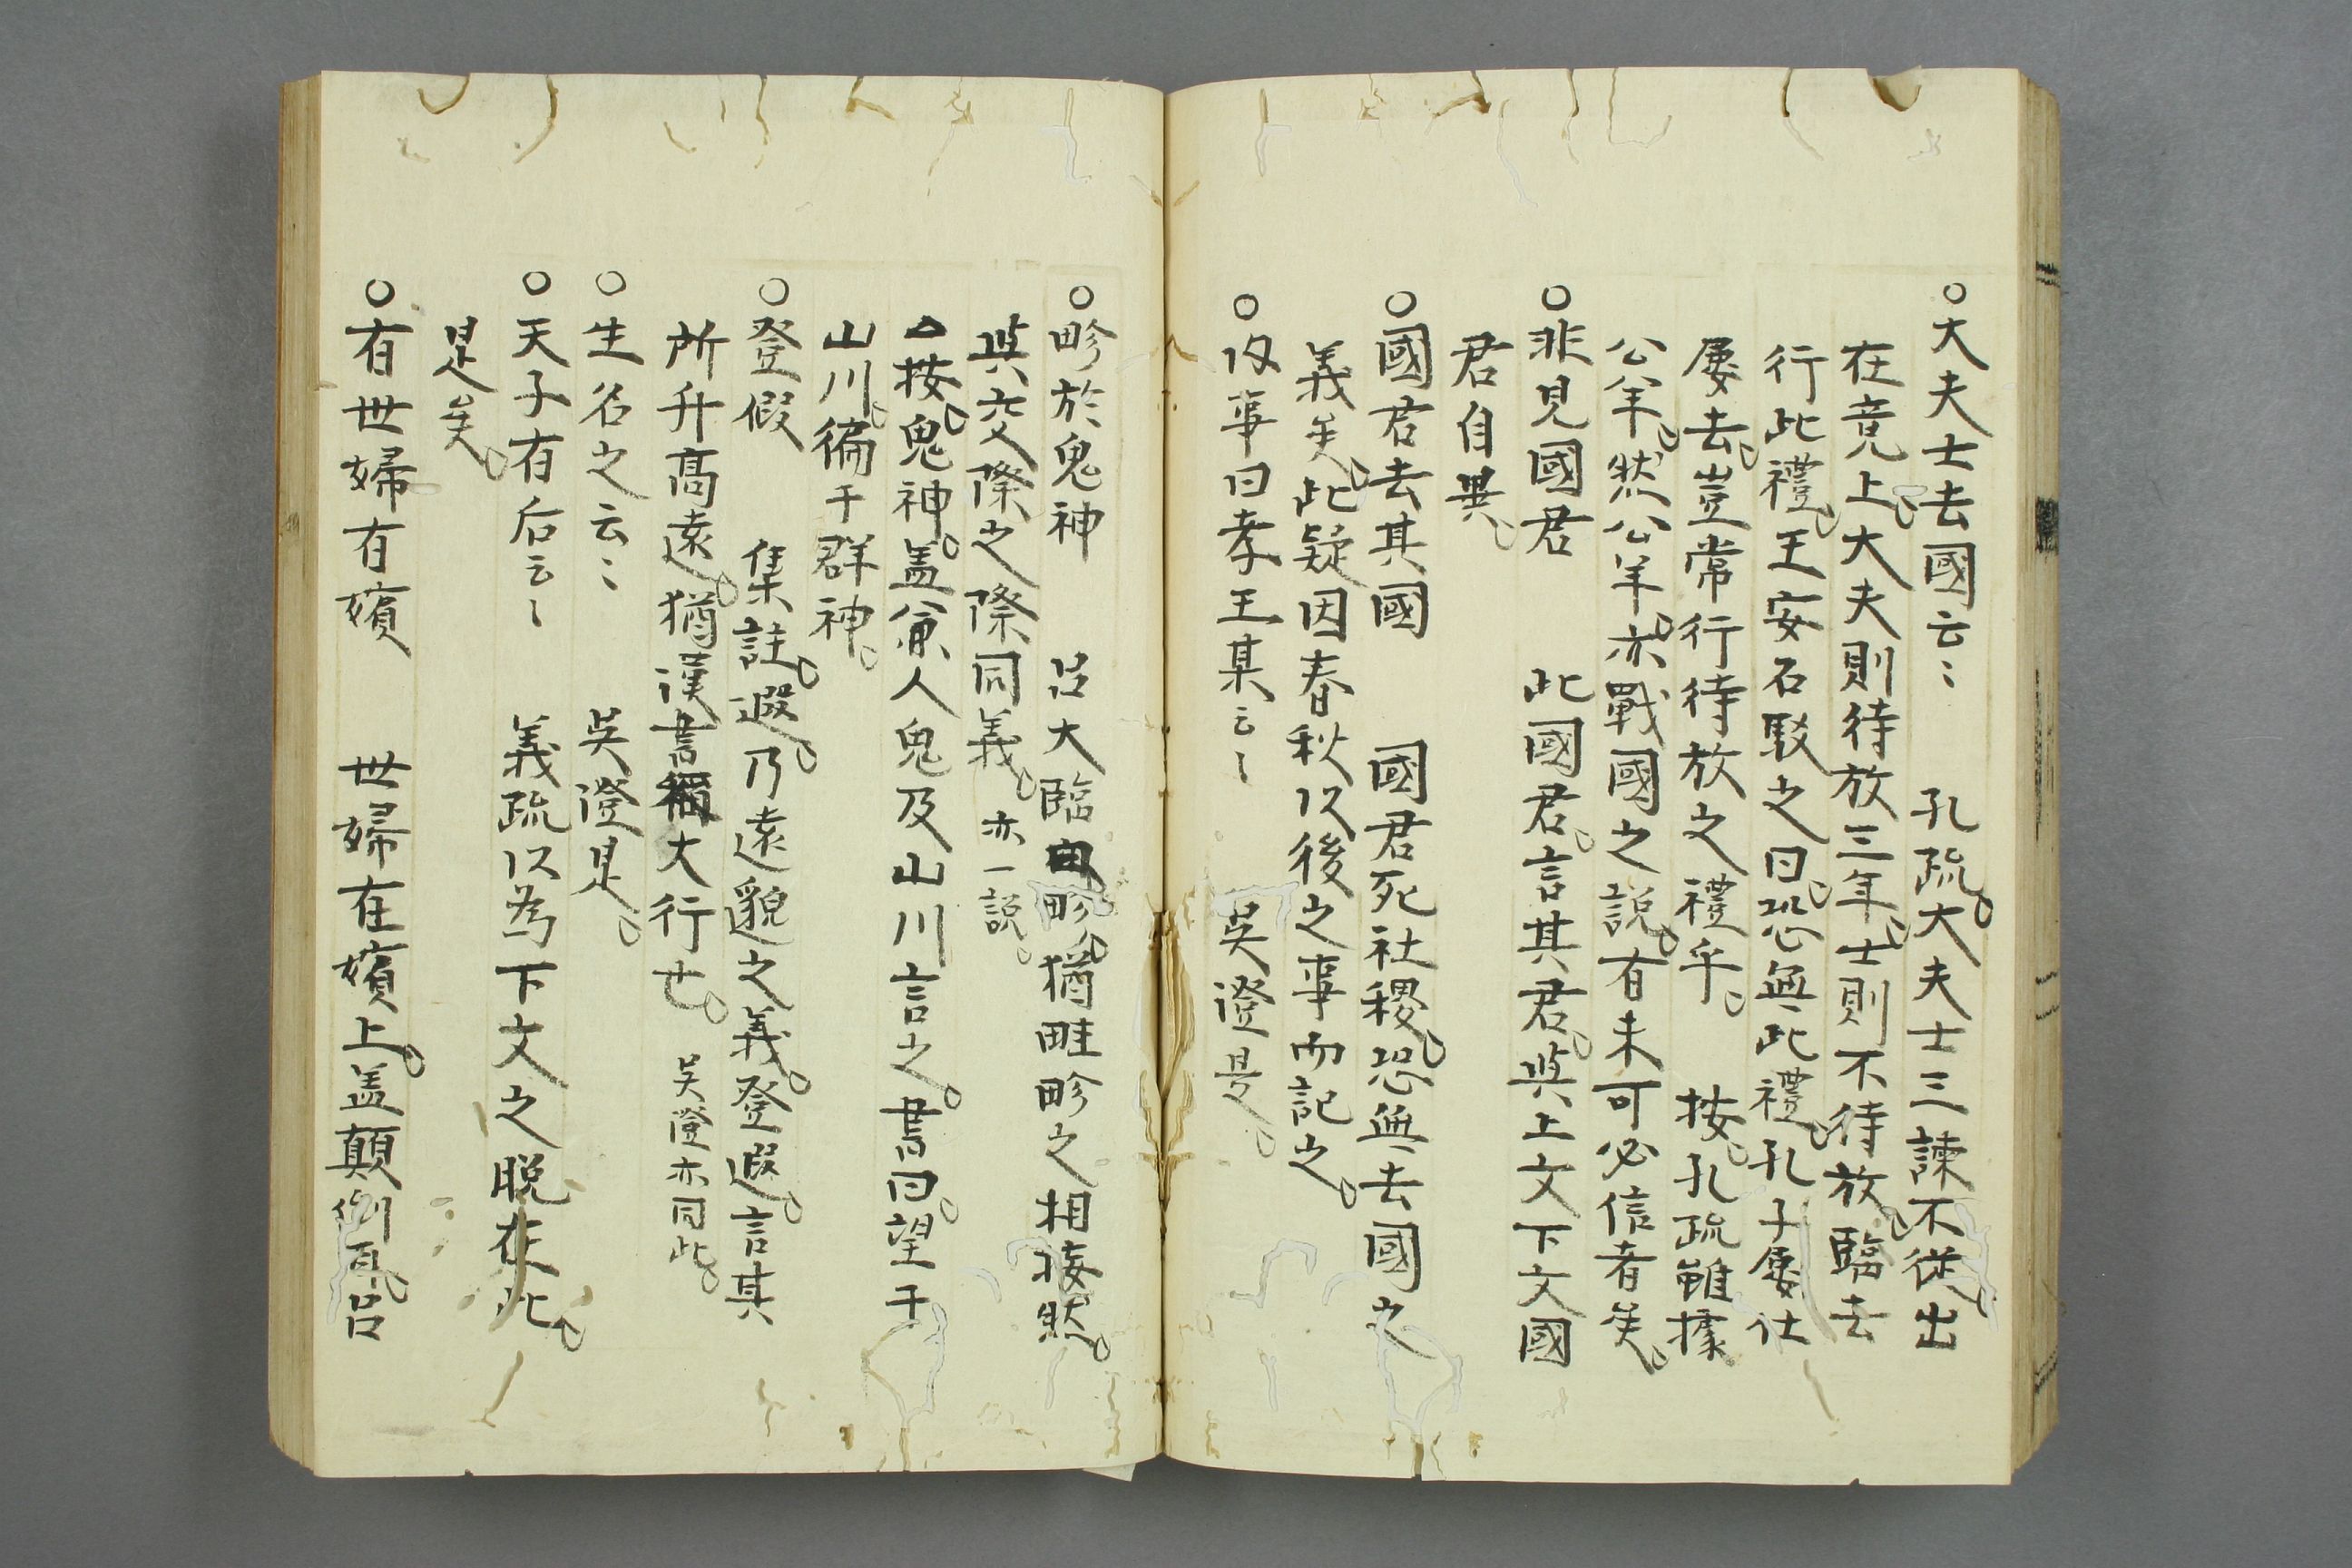 ○大夫士去國云〻　孔疏。大夫士三諫不從。出
在竟上。大夫則待放三年。士則不待放。臨去
行此禮。王安石駁之曰。恐無此禮。孔子屢仕
屢去。豈常行待放之禮乎。　按。孔疏雖據
公羊。然公羊亦戰國之說。有未可必信者矣。
○非見國君　此國君。言其君。與上文下文國
君自異。
○國君去其國　國君死社稷。恐無去國之
義矣。此疑因春秋以後之事而記之。
○内事曰孝王某云〻　吳澄是。
○畛於鬼神　呂大臨畛。猶畦畛之相接然。
與交際之際同義。亦一說。
按。鬼神。盖兼人鬼及山川言之。書曰。望于
山川。徧于群神。
○登假　集註。遐。乃遠邈之義。登遐。言其
所升高遠。猶漢書稱大行也。吳澄亦同此。
○生名之云〻　吳澄是。
○天子有后云〻　義疏以為下文之脫在此。
是矣。
○有世婦有嬪　世婦在嬪上。盖顛倒耳。呂